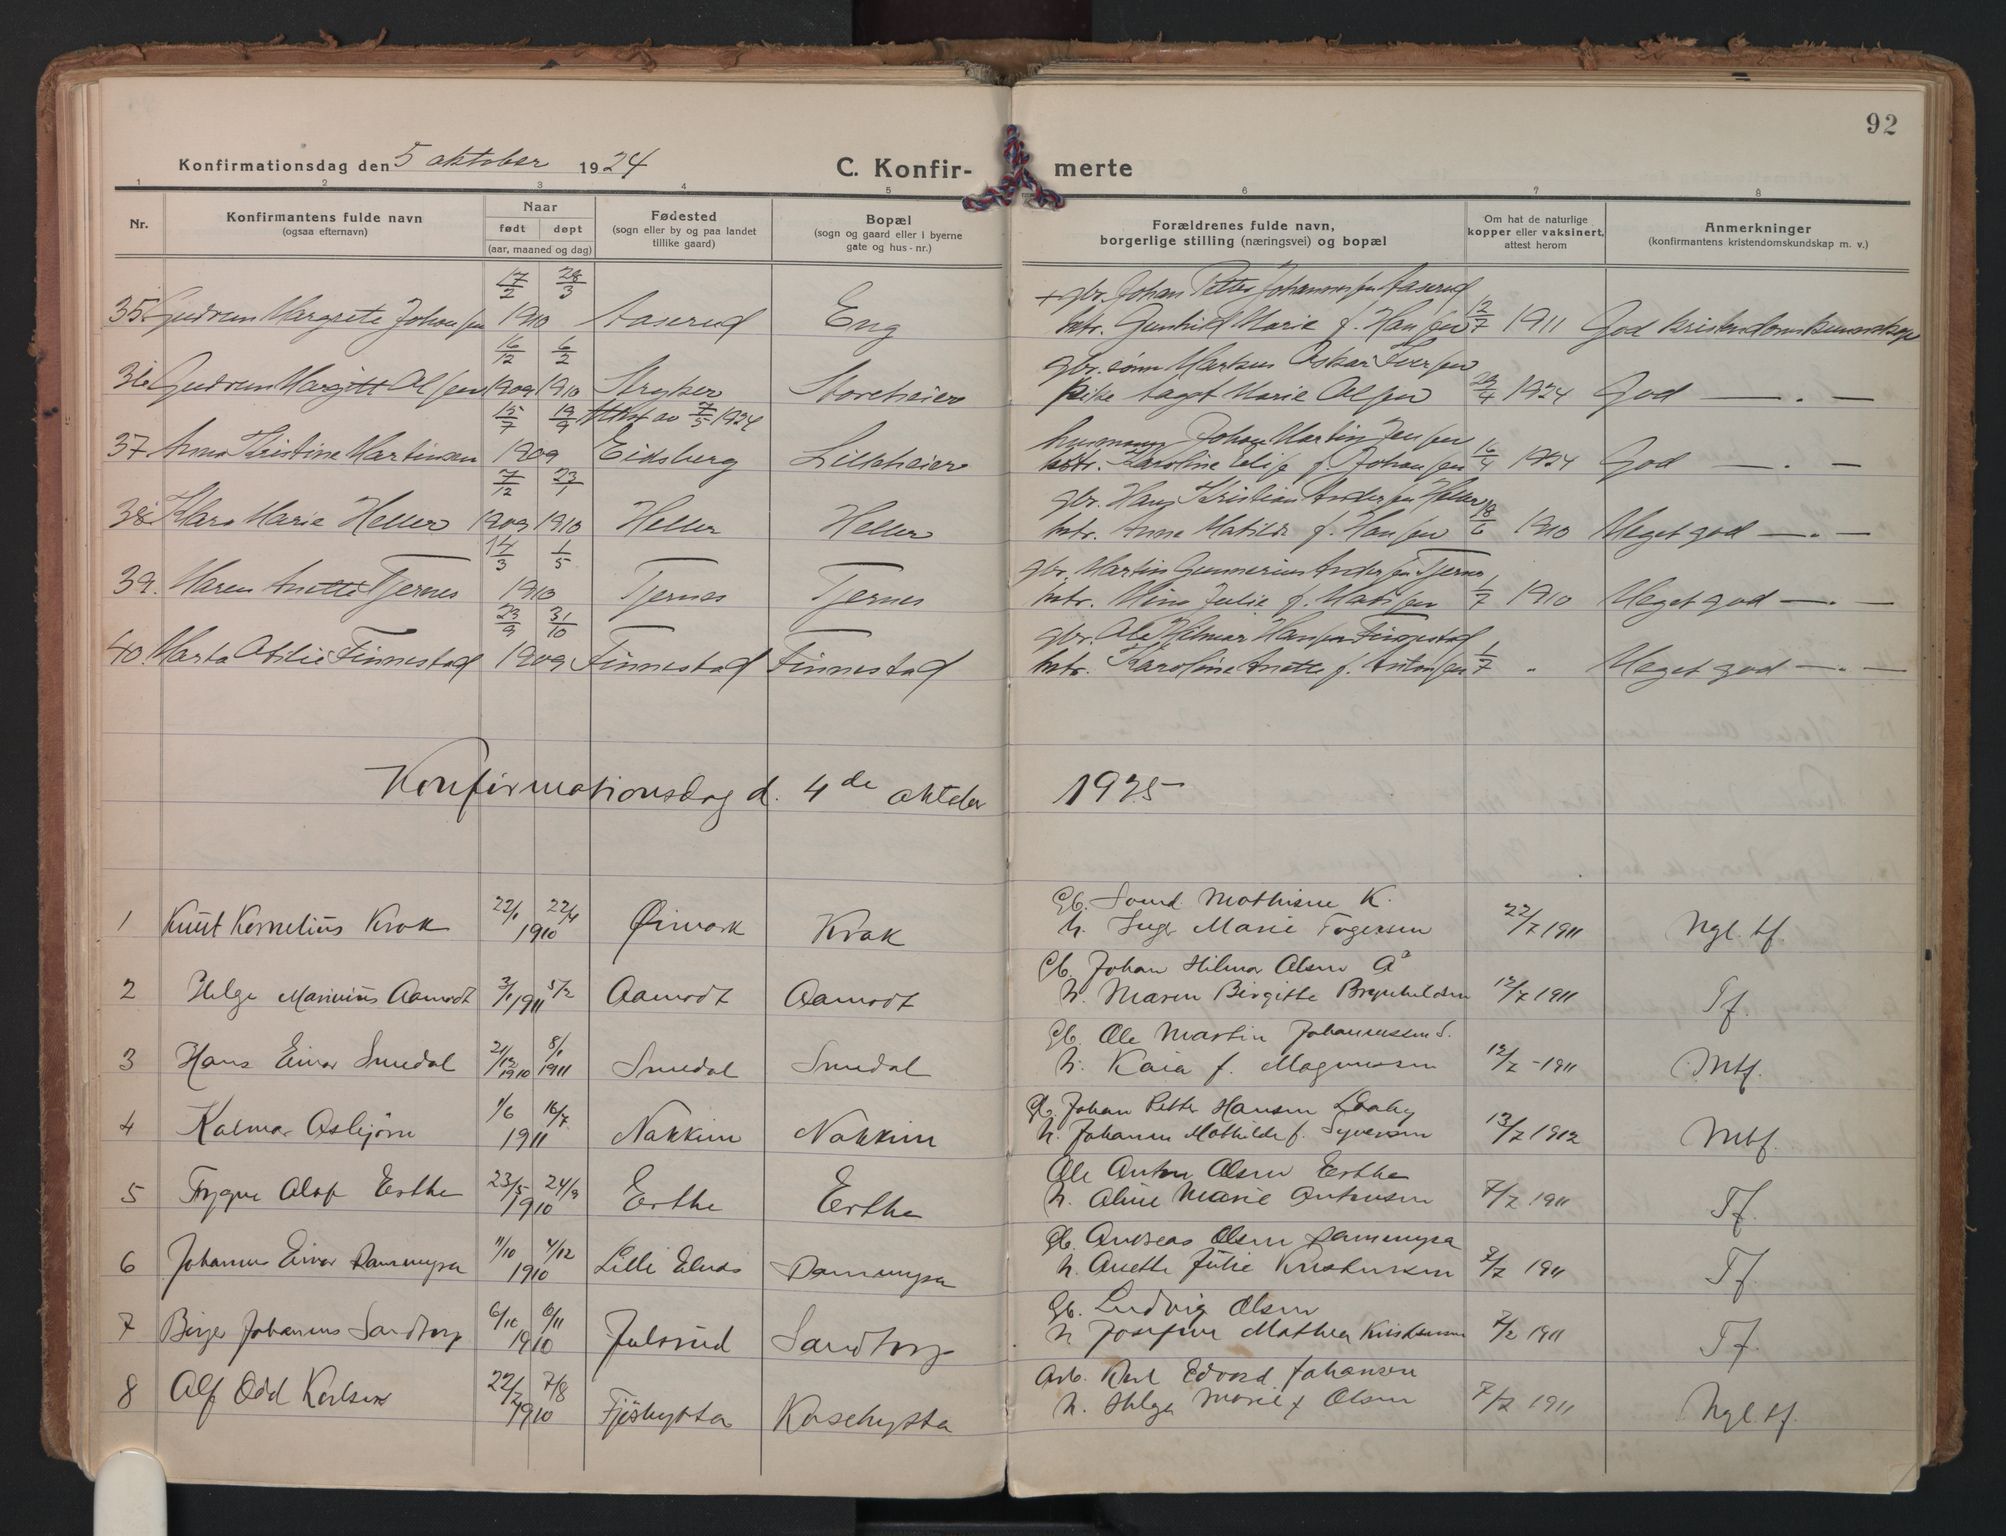 92
Konfirmationsdag den 5 oktober 1924
C. Konfir- merte
1 2 3 4 5 6 7 8
Nr. Konfirmantens fulde navn (ogsaa efternavn) Naar født døpt (aar, maaned og dag) Fødested (sogn eller by og paa landet tillike gaard) Bopæl (sogn og gaard eller i byerne gate og hus-nr.) Forældrenes fulde navn, borgerlige stilling (næringsvei) og bopæl Om hat de naturlige kopper eller vaksinert, attest herom Anmerkninger (konfirmantens kristendomskundskap m. v.)
17/2 28/3 + gbr. Johan Petter Johannessen Aaserud
35 Gudrun Margrete Johansen 1910 Aaserud Eng hstr. Gunhild Marie f. Hansen 12/7 1911 God kristendomskunnskap
16/12 6/2 gbr. sønn Markus Oskar Iversen
36 Gudrun Margitt Olsen 1909 1910 Stryker Storeheier pike Aagot Marie Olsen 29/4 1924 God — . —
15/7 19/9 Attest av 7/5 1924 husmann Johan Martin Jensen
37 Anna Kristine Martinsen 1909 Eidsberg Lilleheier hstr. Karoline Elise f. Johansen 16/4 1924 God — . —
7/12 23/1 gbr. Hans Kristian Andersen Heller
38 Klara Marie Heller 1909 1910 Heller Heller hstr. Anna Matilde f. Hansen 18/6 1910 Meget god — . —
14/3 1/5 gbr. Martin Gunnerius Andersen Tjernes
39. Maren Anette Tjernes 1910 Tjernes Tjernes hstr. Mina Julie f. Matisen 1/7 1910 Meget god — . —
23/9 31/10 gbr. Ole Hilmar Hansen Finnestad
40 Marta Otilie Finnestad 1909 Finnestad Finnestad hstr. Karoline Anette f. Antonsen 1/7 " Meget god — . —
Konfirmationsdag d. 4de oktober 1925
22/1 22/4 Gb. Mathisen K.
1 Knut Kornelius Krok 1910 Øimark Krok h. Inger Marie Torgersen 22/7 1911 Ngl. tf.
Gb. Johan Hilmar Olsen Å
2 Helge Marinius Aamodt 3/1 1911 5/2 Aamodt Aamodt h. Maren Birgitte Brynhildsen 12/7 1911 Tf.
Gb. Ole Martin Johannessen S.
3 Hans Einar Smedal 21/12 1910 8/1 1911 Smedal Smedal h. Kaia f. Magnussen 12/7 - 1911 Mtf.
1/6 16/7 Gb. Johan Petter Hansen Laaby
4 Kalmar Asbjørn 1911 Nakkim Nakkim h. Johanne Mathilde f. Syversen 13/7 1912 Mtf.
23/5 24/9 Ole Anton Olsen Erthe
5 Trygve Olaf Erthe 1910 Erthe Erthe h. Aline Marie Antonsen 7/7 1911 Tf.
11/10 4/12 Gb. Andreas Olsen Dammyra
6 Johannes Einar Dammyra 1910 Lille Elnes Dammyra h. Anette Julie Kristiansen 7/7 1911 Tf.
6/10 6/11 Gb. Ludvig Olsen
7 Birger Johannes Sandtorp 1910 Julsrud Sandtorp h. Josefine Mathea Kristiansen 7/7 1911 Tf.
22/7 7/8 Arb. Karl Edvard Johansen
8 Alf Odd Karlsen 1910 Fjøshytta Kasehytta h. Helga Marie f. Olsen 7/7 1911 Ngl. tf.